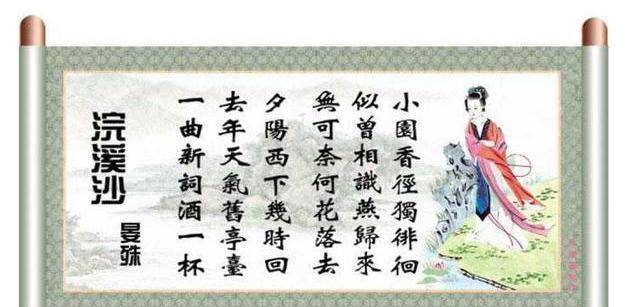 浣溪沙
晏殊
一曲新詞酒一杯
去年天氣舊亭臺
夕陽西下幾時回
無可奈何花落去
似曾相識燕歸來
小園香徑獨徘徊